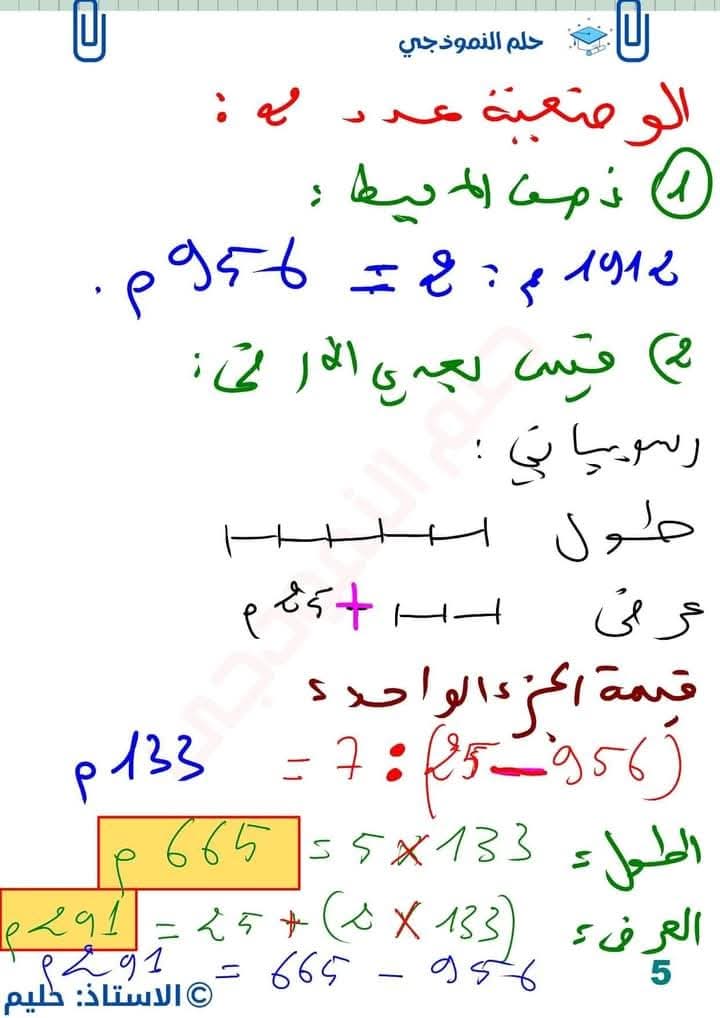 حلم النموذجي
الوضعية عدد 2 :
1 نصف المحيط :
1912 م : 2 = 956 م .
2) قيس بعدي الأرض :
رسم بياني :
طول
عرض + 25 م
قيمة الجزء الواحد :
(956 - 25) : 7 = 133 م
الطول = 133 × 5 = 665 م
العرض = (133 × 2) + 25 = 291 م
956 - 665 = 291 م
5
© الاستاذ: حليم